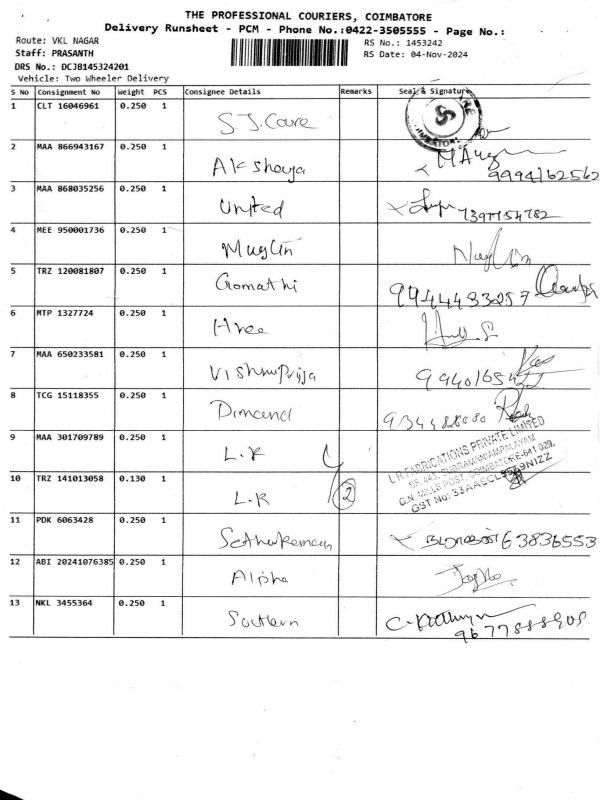 THE PROFESSIONAL COURIERS, COIMBATORE
Delivery Runsheet - PCM - Phone No.:0422-3505555 - Page No.:
Route: VKL NAGAR
RS No.: 1453242
Staff: PRASANTH
RS Date: 04-Nov-2024
DRS No.: DCJB145324201
Vehicle: Two Wheeler Delivery
S No Consignment No Weight PCS Consignee Details Remarks Seal & Signature
1 CLT 16046961 0.250 1 S.J. Care
2 MAA 866943167 0.250 1 Akshaya 9994162562
3 MAA 868035256 0.250 1 United 7397154782
4 MEE 950001736 0.250 1
5 TRZ 120081807 0.250 1 Gomathi 9444433257
6 MTP 1327724 0.250 1 Hree
7 MAA 650233581 0.250 1 Vishnupriya
8 TCG 15118355 0.250 1
9 MAA 301709789 0.250 1 L.R
L R FABRICATIONS PRIVATE LIMITED
SUBRAMANIAMPALAYAM
G.N. MILLS POST, COIMBATORE-641 029.
GST No: 33AAECL9569N1ZZ
10 TRZ 141013058 0.130 1 L.R 2
11 PDK 6063428 0.250 1 63836553
12 ABI 20241076385 0.250 1 Alpha
13 NKL 3455364 0.250 1 Southern